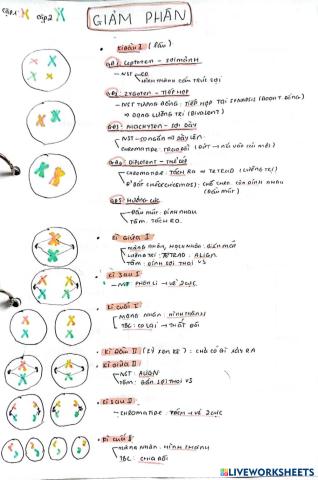 cặp 1 cặp 2
GIẢM PHÂN
Kì đầu I (lâu)
GĐ1: Leptoten - sợi mảnh
- NST co
hình thành cấu trúc sợi
GĐ2: Zygoten - tiếp hợp
- NST tương đồng: tiếp hợp tại synapsis
⇒ dạng lưỡng trị (Bivalent)
GĐ3: Pachyten - sợi dày
- NST co ngắn ⇒ dày lên
chromatide: trao đổi (đứt → nối
GĐ4: Diploten - thể kép
- chromatide: tách ra ⇒ tetreid (lưỡng trị)
chỗ chéo còn dính nhau
(đầu mút)
GĐ5: hướng cực
- Đầu mút: dính nhau
- Tâm: tách ra
Kì giữa I
- màng nhân, hạch nhân: biến mất
- lưỡng trị/tetrad: align
- Tâm: đính sợi thoi VS
Kì sau I
- NST phân li → về 2 cực
Kì cuối I
- màng nhân: hình thành
- TBC: co lại → thắt đôi
Kì đầu II (kỳ xen kẽ): chả có gì xảy ra
Kì giữa II
- NST: align
- Tâm: gắn sợi thoi VS
Kì sau II
- chromatide: tách → về 2 cực
Kì cuối II
- màng nhân: hình thành
TBC: chia đôi
LIVEWORKSHEETS